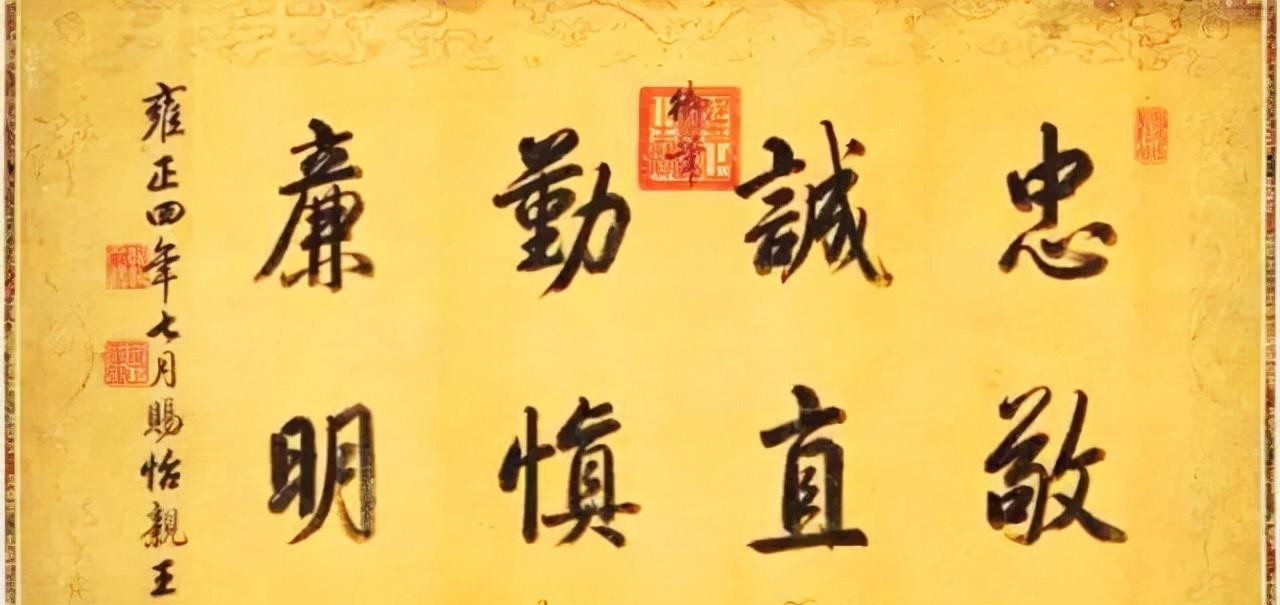 御筆
忠敬
誠直
勤慎
廉明
雍正四年七月賜怡親王